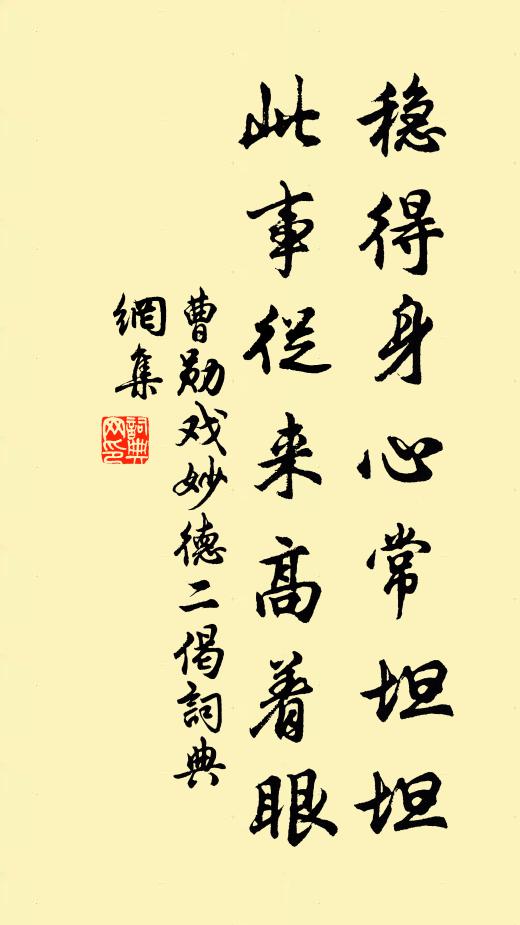 稳得身心常坦坦
此事從来高着眼
曹勋戏妙德二偈詞典
網集
詞典网印